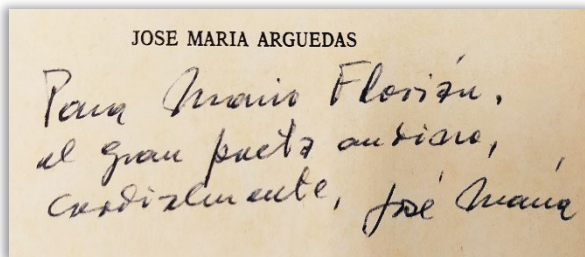 JOSE MARIA ARGUEDAS
Para Mario Florián,
el gran poeta andino,
cordialmente, José María